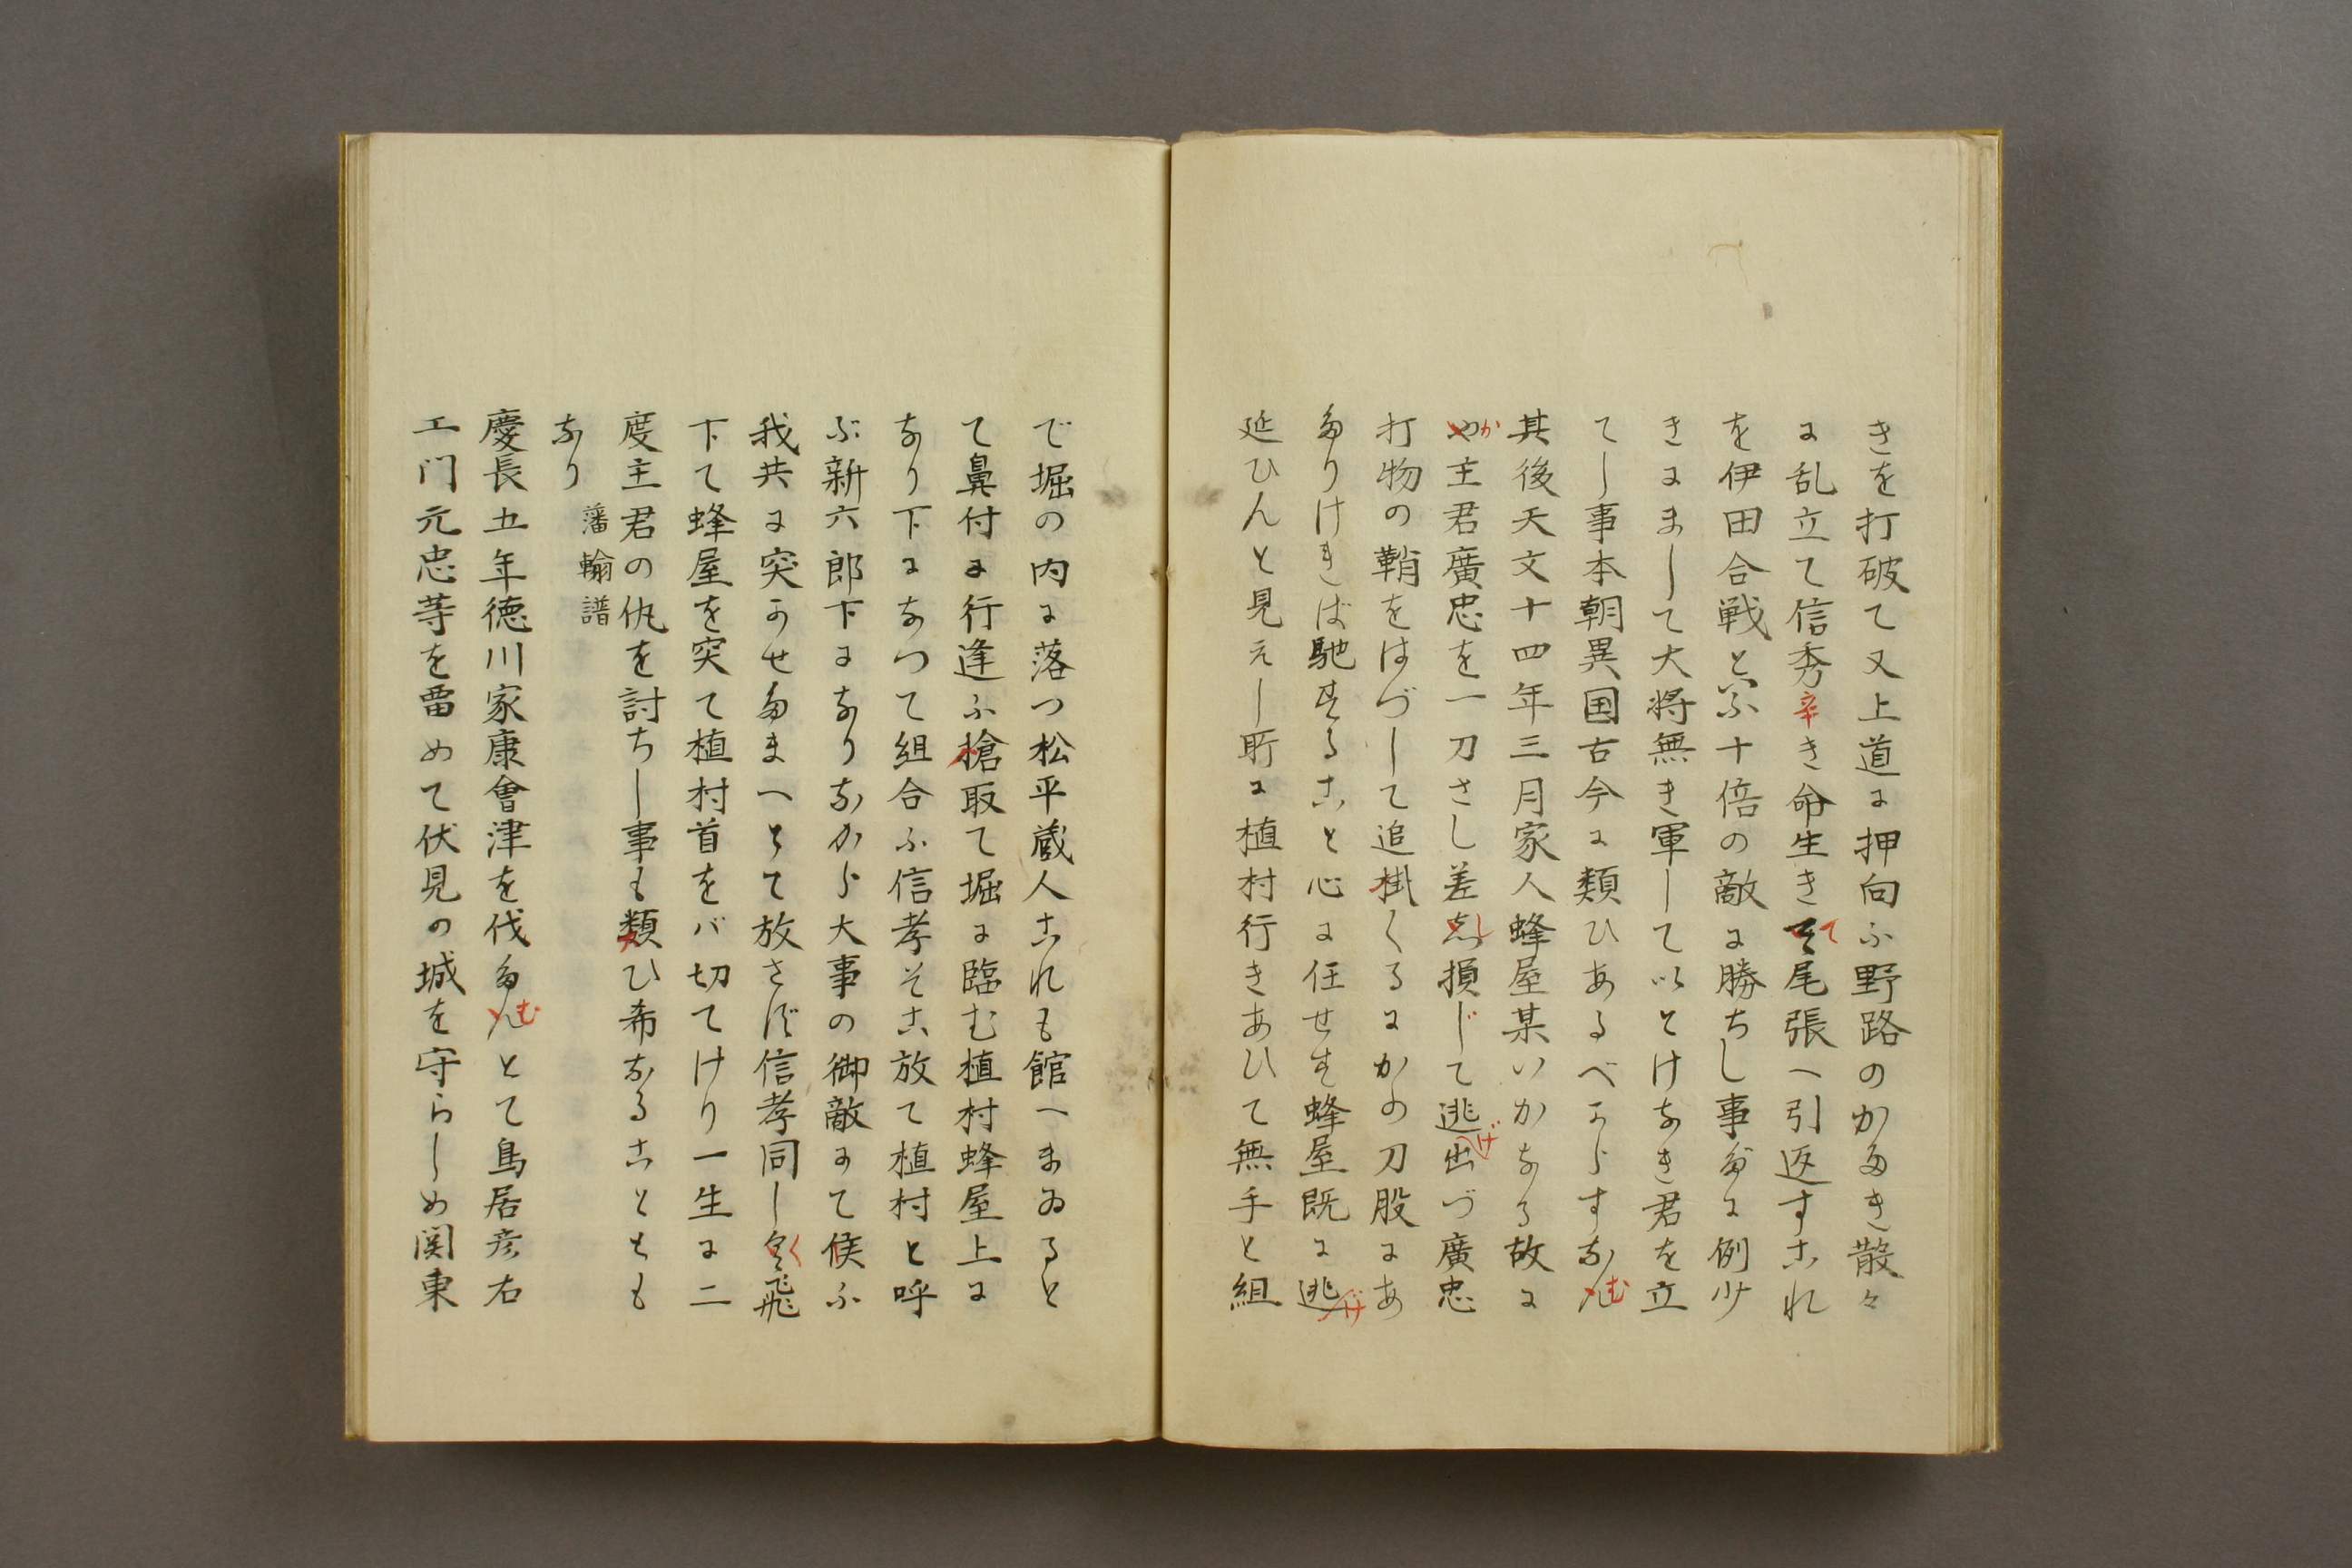 きを打破て又上道に押向ふ野路のかたき散々
に乱立て信秀辛き命生きて尾張へ引返すこれ
を伊田合戦と云ふ十倍の敵に勝ちし事だに例少
きにまして大将無き軍して以とけなき君を立
てし事本朝異国古今に類ひあるべからすなむ
其後天文十四年三月家人蜂屋某いかなる故に
か主君廣忠を一刀さし差し損じて逃げ出づ廣忠
打物の鞘をはづして追掛くるにかの刀股にあ
たりければ馳することと心に任せす蜂屋既に逃げ
延ひんと見えし所に植村行きあひて無手と組
で堀の内に落つ松平蔵人これも館へまゐると
て鼻付に行逢ふ槍取て堀に臨む植村蜂屋上に
なり下になつて組合ふ信孝そこ放て植村と呼
ぶ新六郎下になりなから大事の御敵にて候ふ
我共に突かせたまへとて放さず信孝同しく飛
下て蜂屋を突て植村首をバ切てけり一生に二
度主君の仇を討ちし事も類ひ希なることとも
なり 藩輸譜
慶長五年徳川家康會津を伐たむとて鳥居彦右
エ门元忠等を畱めて伏見の城を守らしめ関東